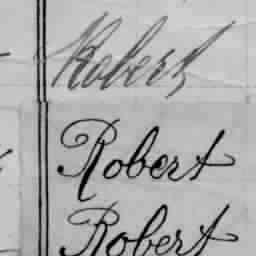 Robert
Robert
Robert